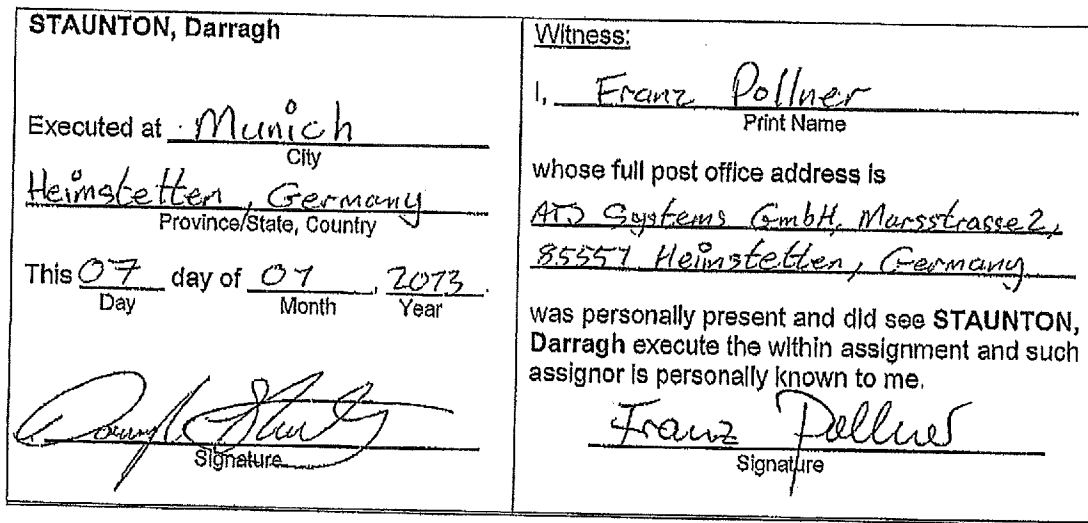 STAUNTON, Darragh
Executed at Munich
City
Heimstetten, Germany
Province/State, Country
This 07 day of 01, 2013.
Day Month Year
Signature
Witness:
I, Franz Pollner
Print Name
whose full post office address is
Systems GmbH, Marsstrasse 2,
85551 Heimstetten, Germany
was personally present and did see STAUNTON,
Darragh execute the within assignment and such
assignor is personally known to me.
Franz Pollner
Signature